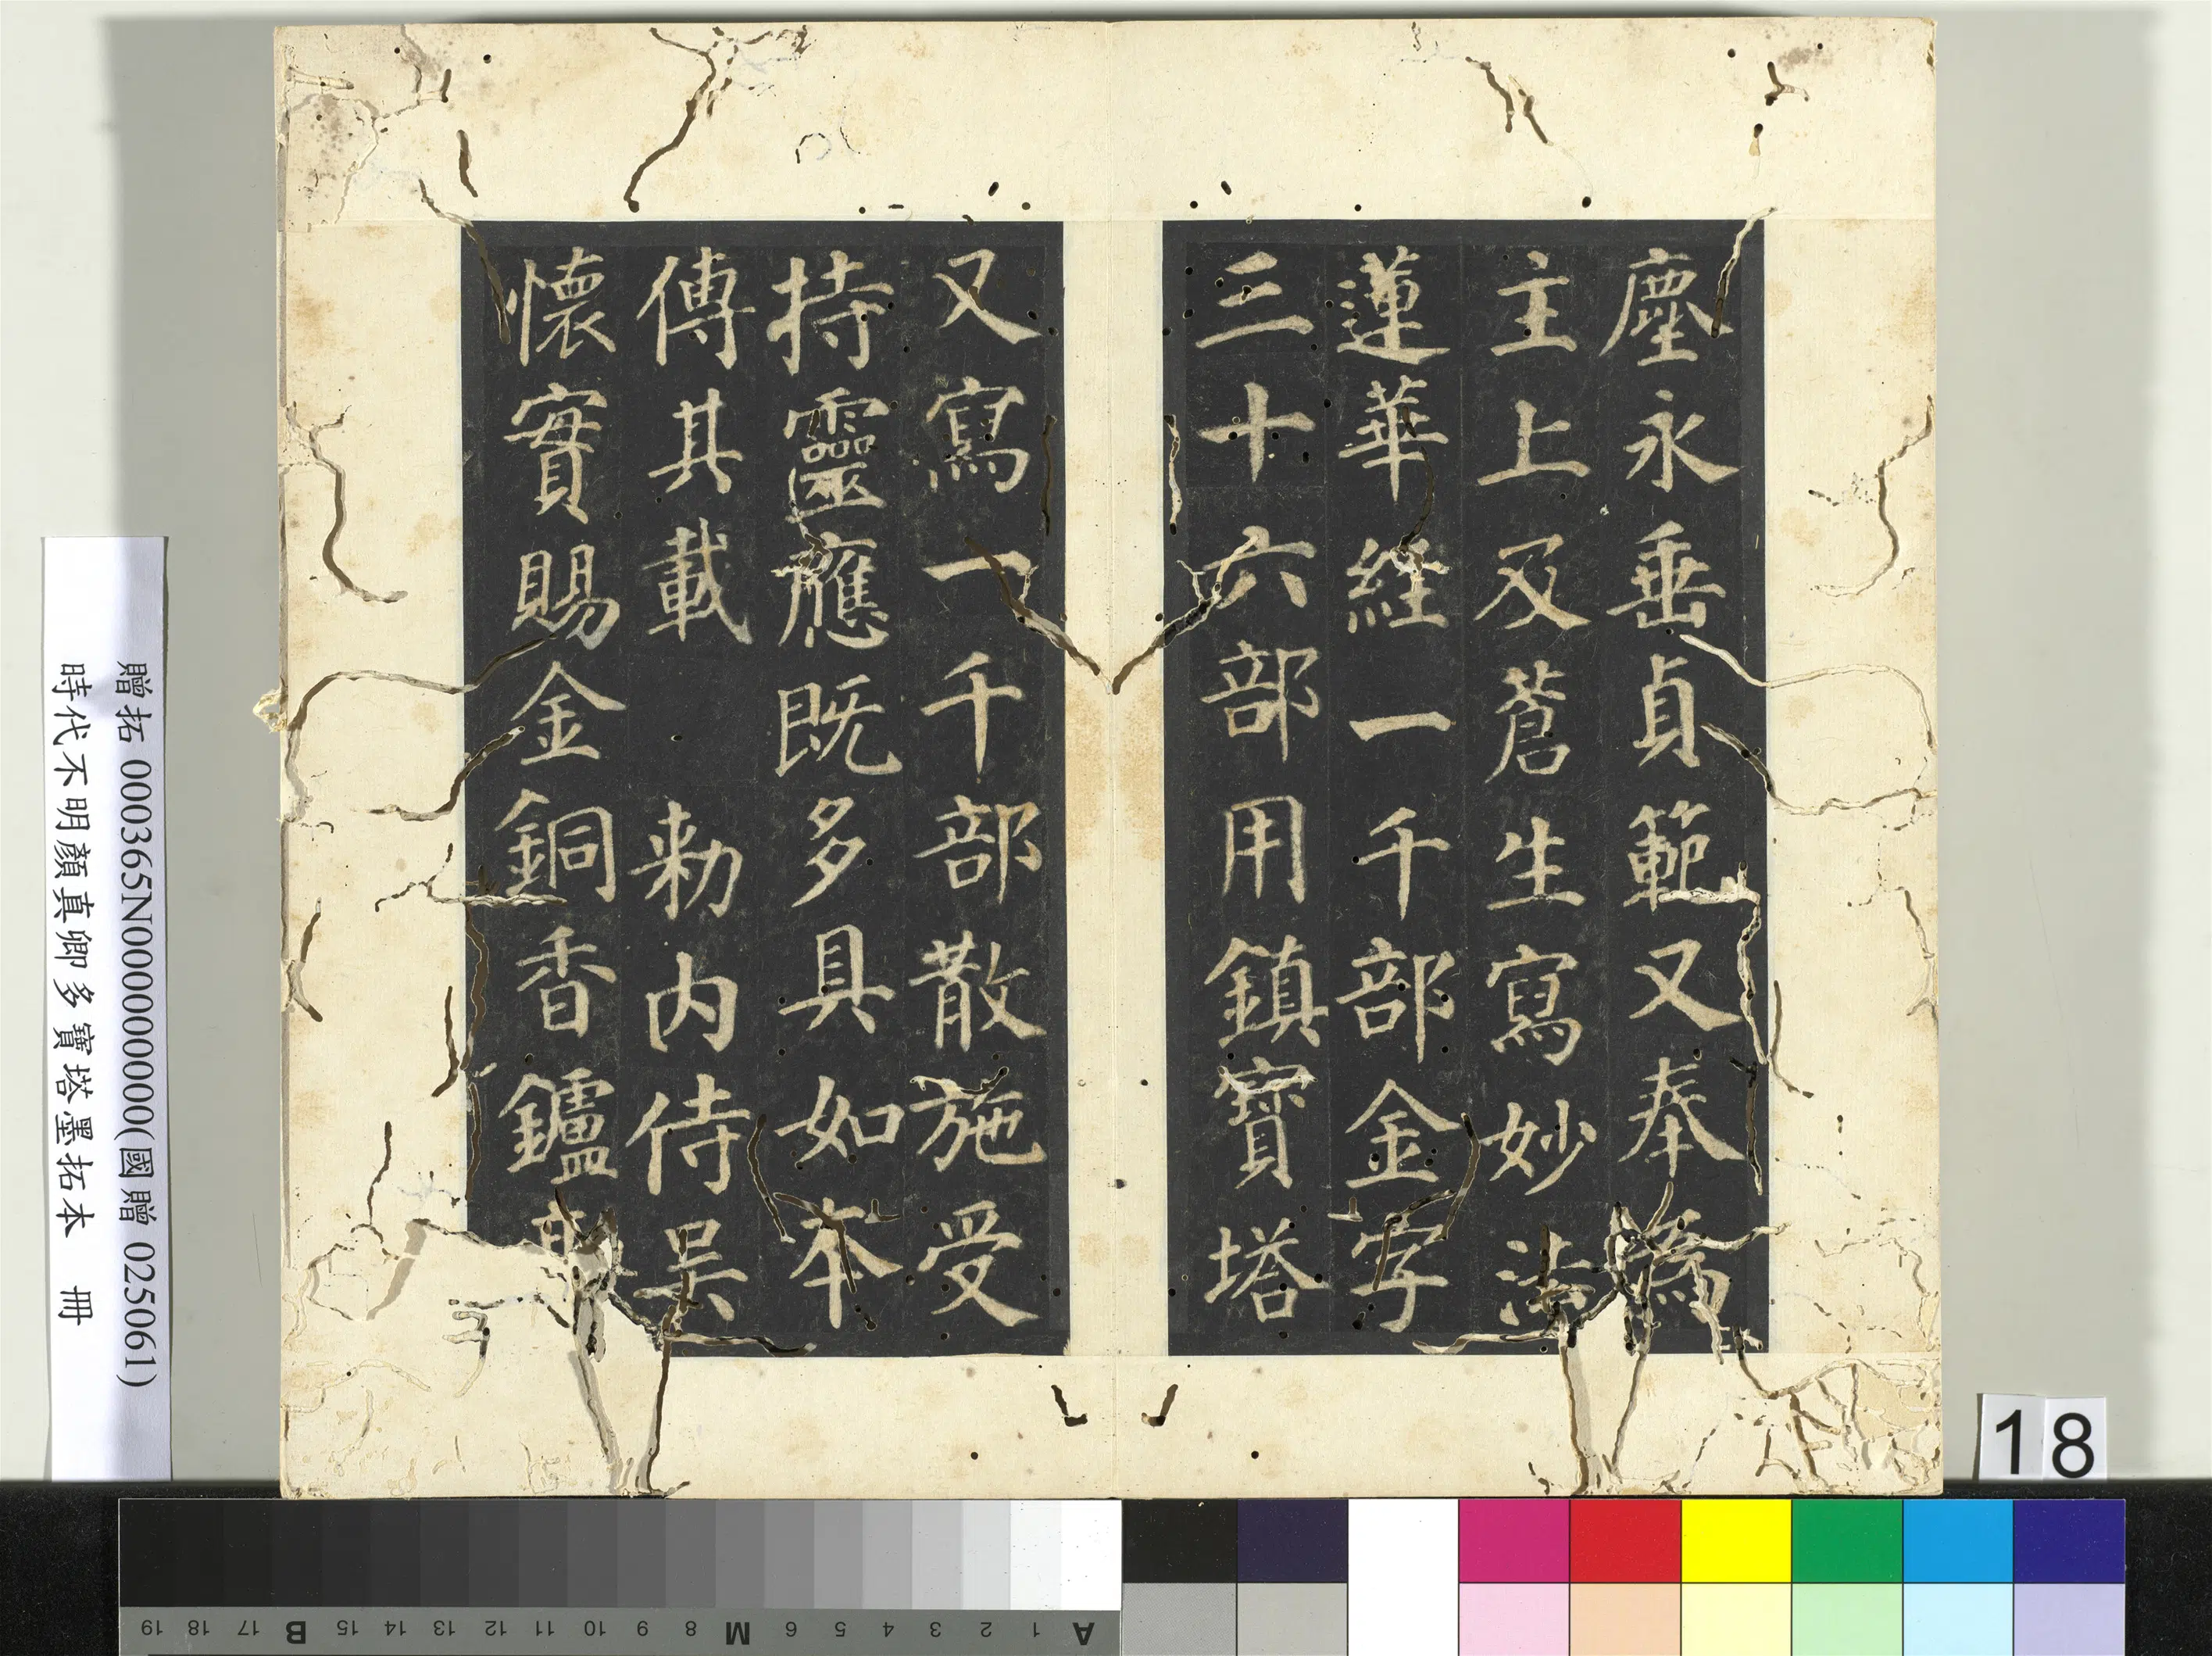 塵永垂貞範又奉為
主上及蒼生寫妙法
蓮華經一千部金字
三十六部用鎮寶塔
又寫一千部散施受
持靈應既多具如本
傳其載 敕内侍吳
懷實賜金銅香鑪高
贈拓 000365N000000000(國贈 025061)
時代不明顏真卿多寶塔墨拓本 冊
18
A 1 2 3 4 5 6 M 8 9 10 11 12 13 14 15 B 17 18 19